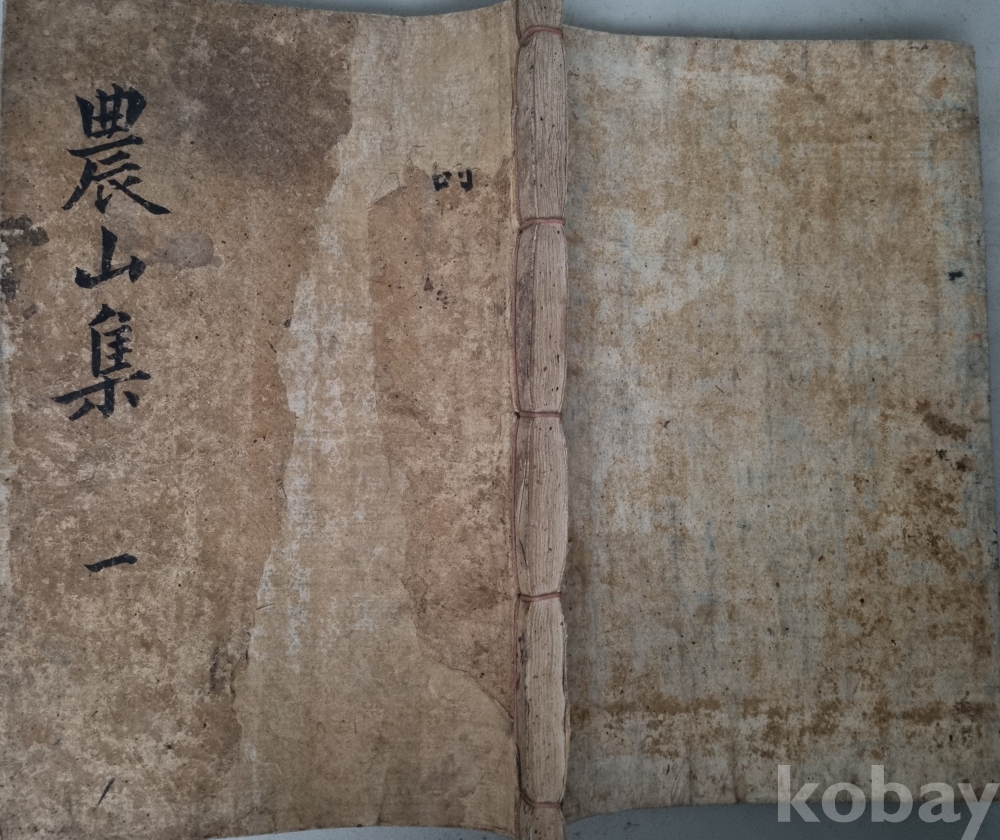 農山集 一
kobay